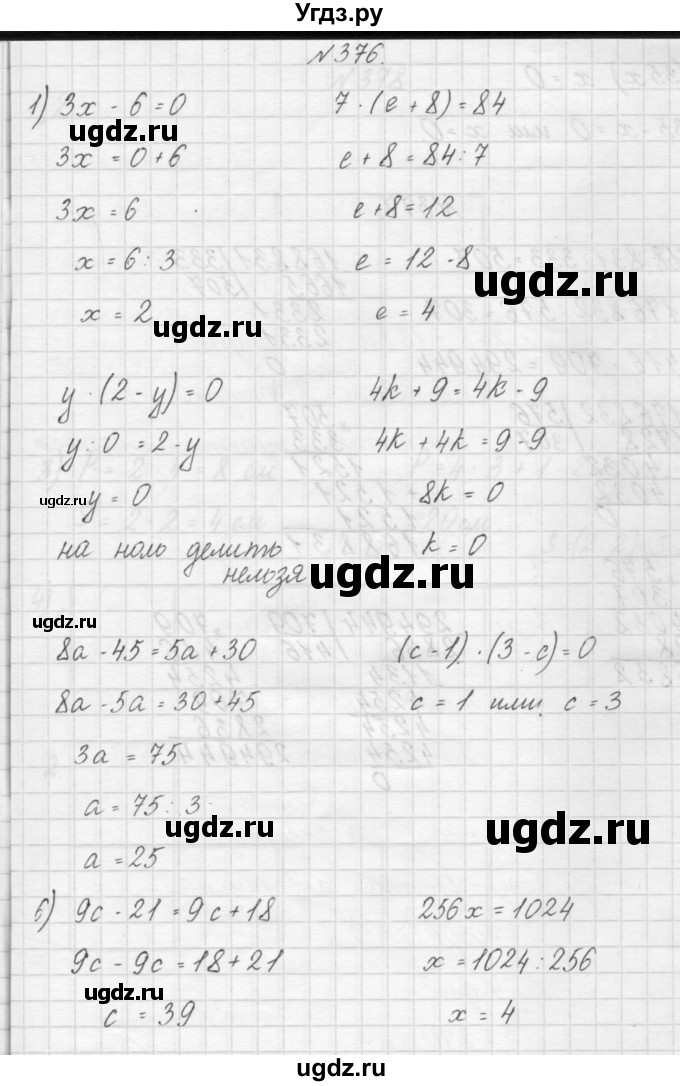 Угдз.ру
№376.
1) 3x - 6 = 0
3x = 0 + 6
3x = 6
x = 6 : 3
x = 2
7 · (e + 8) = 84
e + 8 = 84 : 7
e + 8 = 12
e = 12 - 8
e = 4
y · (2 - y) = 0
y : 0 = 2 - y
y = 0
на ноль делить
нельзя
4k + 9 = 4k - 9
4k + 4k = 9 - 9
8k = 0
k = 0
8a - 45 = 5a + 30
8a - 5a = 30 + 45
3a = 75
a = 75 : 3
a = 25
(c - 1) · (3 - c) = 0
c = 1 или c = 3
6) 9c - 21 = 9c + 18
9c - 9c = 18 + 21
c = 39
256x = 1024
x = 1024 : 256
x = 4
ugdz.ru
ugdz.ru
ugdz.ru
ugdz.ru
ugdz.ru
ugdz.ru
ugdz.ru
ugdz.ru
ugdz.ru
ugdz.ru